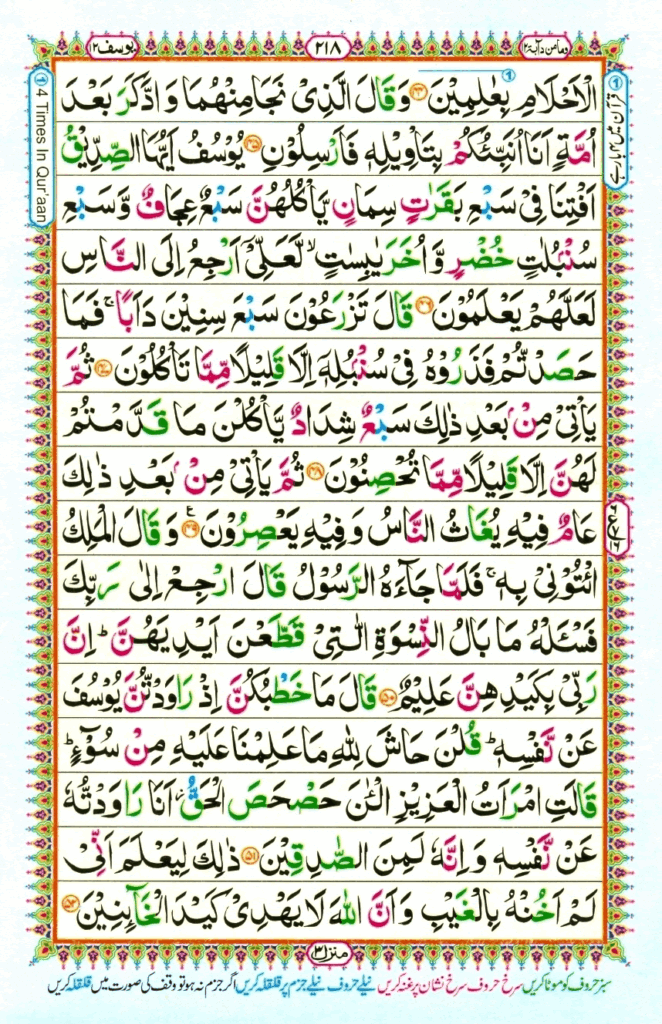 وما من دآبة ١٢
٢١٨
يوسف ١٢
الْاَحْلَامِ بِعٰلِمِيْنَ ﴿۴۴﴾ وَقَالَ الَّذِيْ نَجَا مِنْهُمَا وَادَّكَرَ بَعْدَ
اُمَّةٍ اَنَا اُنَبِّئُكُمْ بِتَاْوِيْلِهٖ فَاَرْسِلُوْنِ ﴿۴۵﴾ يُوْسُفُ اَيُّهَا الصِّدِّيْقُ
اَفْتِنَا فِيْ سَبْعِ بَقَرٰتٍ سِمَانٍ يَّاْكُلُهُنَّ سَبْعٌ عِجَافٌ وَّسَبْعِ
سُنْۢبُلٰتٍ خُضْرٍ وَّاُخَرَ يٰبِسٰتٍ ۙ لَّعَلِّيْۤ اَرْجِعُ اِلَى النَّاسِ
لَعَلَّهُمْ يَعْلَمُوْنَ ﴿۴۶﴾ قَالَ تَزْرَعُوْنَ سَبْعَ سِنِيْنَ دَاَبًا ۚ فَمَا
حَصَدْتُّمْ فَذَرُوْهُ فِيْ سُنْۢبُلِهٖۤ اِلَّا قَلِيْلًا مِّمَّا تَاْكُلُوْنَ ﴿۴۷﴾ ثُمَّ
يَاْتِيْ مِنْۢ بَعْدِ ذٰلِكَ سَبْعٌ شِدَادٌ يَّاْكُلْنَ مَا قَدَّمْتُمْ
لَهُنَّ اِلَّا قَلِيْلًا مِّمَّا تُحْصِنُوْنَ ﴿۴۸﴾ ثُمَّ يَاْتِيْ مِنْۢ بَعْدِ ذٰلِكَ
عَامٌ فِيْهِ يُغَاثُ النَّاسُ وَفِيْهِ يَعْصِرُوْنَ ﴿۴۹﴾ ع وَقَالَ الْمَلِكُ
ائْتُوْنِيْ بِهٖ ۚ فَلَمَّا جَآءَهُ الرَّسُوْلُ قَالَ ارْجِعْ اِلٰى رَبِّكَ
فَسْـَٔلْهُ مَا بَالُ النِّسْوَةِ الّٰتِيْ قَطَّعْنَ اَيْدِيَهُنَّ ؕ اِنَّ
رَبِّيْ بِكَيْدِهِنَّ عَلِيْمٌ ﴿۵۰﴾ قَالَ مَا خَطْبُكُنَّ اِذْ رَاوَدْتُّنَّ يُوْسُفَ
عَنْ نَّفْسِهٖ ؕ قُلْنَ حَاشَ لِلّٰهِ مَا عَلِمْنَا عَلَيْهِ مِنْ سُوْٓءٍ ؕ
قَالَتِ امْرَاَتُ الْعَزِيْزِ الْـٰٔنَ حَصْحَصَ الْحَقُّ ۫ اَنَا رَاوَدْتُّهٗ
عَنْ نَّفْسِهٖ وَاِنَّهٗ لَمِنَ الصّٰدِقِيْنَ ﴿۵۱﴾ ذٰلِكَ لِيَعْلَمَ اَنِّيْ
لَمْ اَخُنْهُ بِالْغَيْبِ وَاَنَّ اللّٰهَ لَا يَهْدِيْ كَيْدَ الْخَآئِنِيْنَ ﴿۵۲﴾
قرآن میں ۴ بار ہے
4 Times In Qur'aan
منزل ٣
سبز حروف کو موٹا کریں سرخ حروف سرخ نشان پر غنہ کریں نیلے حروف نیلے جزم پر قلقلہ کریں اگر جزم نہ ہو تو وقف کی صورت میں قلقلہ کریں